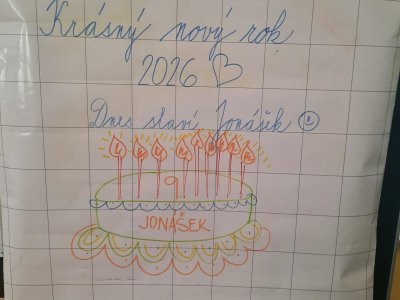 Krásný nový rok
2026 ♡
Dnes slaví Jonášik ☺
9
JONÁŠEK